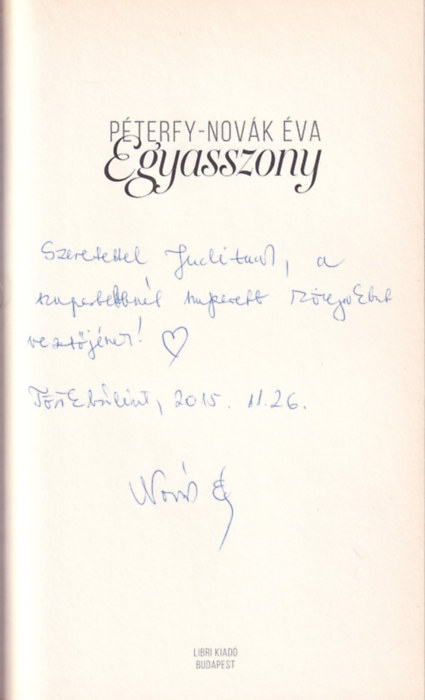 PÉTERFY-NOVÁK ÉVA
Egyasszony
Szeretettel Juditnak, a
szuperebbnél szuperebb könyvklub
vezetőjének! ♡
Törökbálint, 2015. 11.26.
Novák É
LIBRI KIADÓ
BUDAPEST